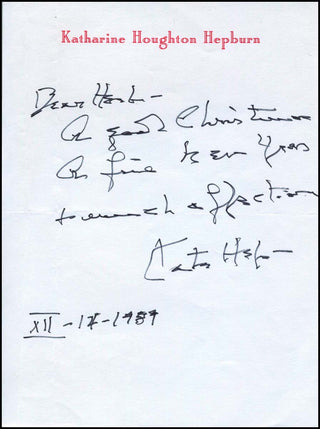 Katharine Houghton Hepburn
Dear Herb -
A good Christmas
A fine New Year
so much affection
Kate Hep -
XII - 14 - 1989